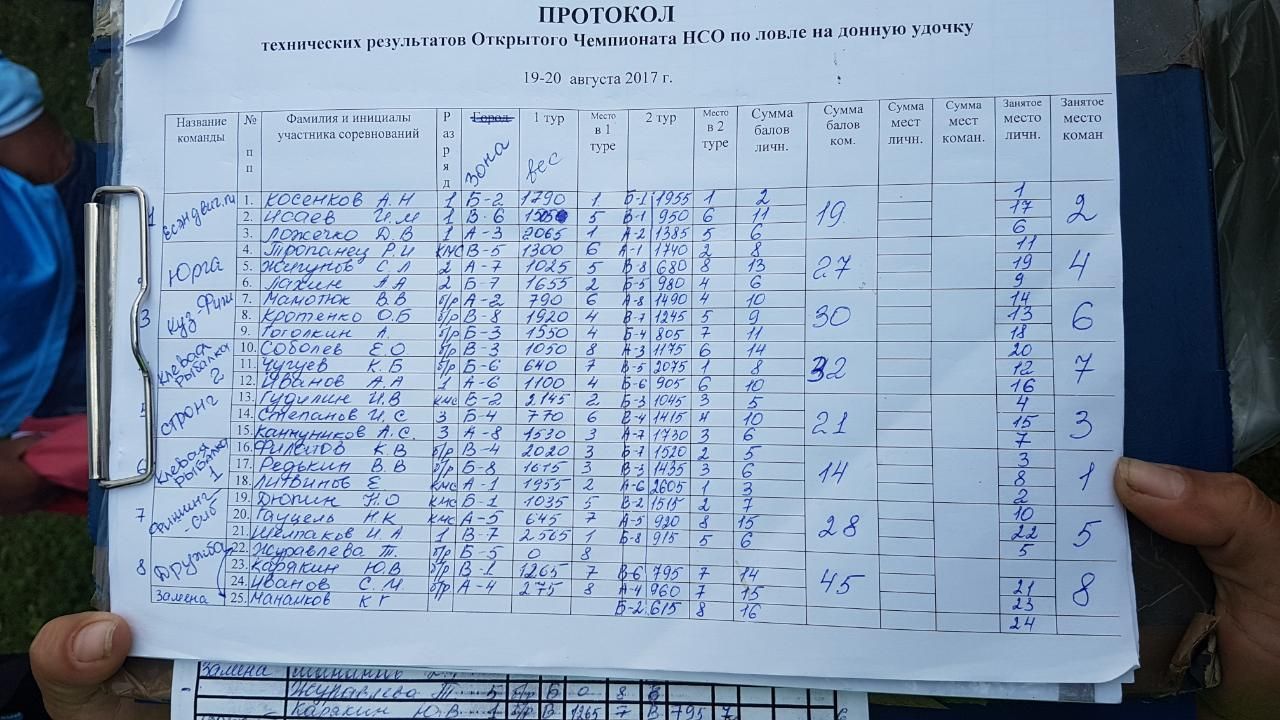 ПРОТОКОЛ
технических результатов Открытого Чемпионата НСО по ловле на донную удочку
19-20 августа 2017 г.
Название команды № пп Фамилия и инициалы участника соревнований Разряд Город зона 1 тур вес Место в 1 туре 2 тур Место в 2 туре Сумма балов личн. Сумма балов ком. Сумма мест личн. Сумма мест коман. Занятое место личн. Занятое место коман
1. Косенков А.Н 1 Б-2 1790 1 Б-1 1955 1 2 19 1 2
2. Исаев И.М 1 В-6 5 В-1 950 6 11 17
3. Ложечко Д.В 1 А-3 2065 1 А-2 1385 5 6 6
Юрга 4. Тропанец Р.И КМС В-5 1300 6 А-1 1740 2 8 27 11 4
5. С.Л 2 А-7 1025 5 В-8 680 8 13 19
6. Лахин А.А 2 Б-7 1655 2 Б-5 980 4 6 9
3 Куз-Фиш 7. Мамотюк В.В б/р А-2 790 6 А-8 1490 4 10 30 14 6
8. Кротенко О.Б б/р В-8 1920 4 В-7 1245 5 9 13
9. Тотолкин А. б/р Б-3 1550 4 Б-4 805 7 11 18
Клевая рыбалка 2 10. Соболев Е.О б/р В-3 1050 8 А-3 1175 6 14 32 20 7
11. Чугуев К.Б б/р Б-6 640 7 В-5 2075 1 8 12
12. Иванов А.А 1 А-6 1100 4 Б-6 905 6 10 16
стронг 13. Гудилин И.В КМС Б-2 2145 2 Б-3 1045 3 5 21 4 3
14. Степанов И.С 3 Б-4 770 6 В-4 1415 4 10 15
15. Канкуников А.С. 3 А-8 1530 3 А-7 1730 3 6 7
6 Клевая рыбалка 1 16. Филатов К.В б/р В-4 2020 3 Б-7 1520 2 5 14 3 1
17. Редькин В.В б/р Б-8 1615 3 В-3 1435 3 6 8
18. Литвинов Е КМС А-1 1955 2 А-6 2605 1 3 2
7 Фишинг-Сиб 19. Дюпин Н.О КМС Б-1 1035 5 В-2 1515 2 7 28 10 5
20. Гауцель Н.К КМС А-5 645 7 А-5 920 8 15 22
21. Шелпаков И.А 1 В-7 2565 1 Б-8 915 5 6 5
8 Дружба 22. Журавлева Т. б/р Б-5 0 8 45 8
23. Карякин Ю.В б/р В-1 1265 7 В-6 795 7 14 21
24. Иванов С.М б/р А-4 275 8 А-4 960 7 15 23
замена 25. Манаков К Г Б-2 615 8 16 24
Замена
Журавлева Т 5 б/р Б 0 8 Б
Карякин Ю.В. 1 б/р В 1265 7 В 795 7